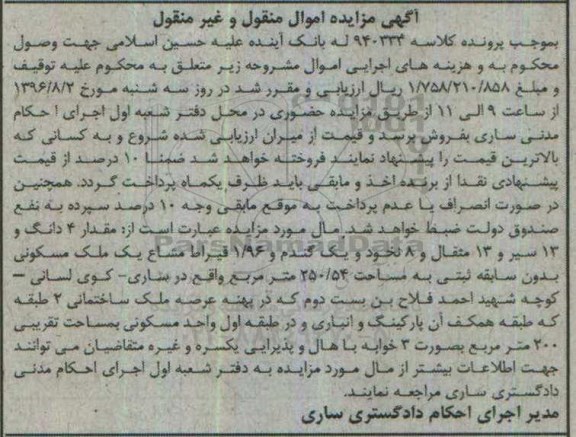 آگهی مزایده اموال منقول و غیر منقول
بموجب پرونده کلاسه ۹۴۰۳۳۴ له بانک آینده علیه حسین اسلامی جهت وصول
محکوم به و هزینه های اجرایی اموال مشروحه زیر متعلق به محکوم علیه توقیف
و مبلغ ۱/۷۵۸/۲۱۰/۸۵۸ ریال ارزیابی و مقرر شد در روز سه شنبه مورخ ۱۳۹۶/۸/۲
از ساعت ۹ الی ۱۱ از طریق مزایده حضوری در محل دفتر شعبه اول اجرای احکام
مدنی ساری بفروش برسد و قیمت از میزان ارزیابی شده شروع و به کسانی که
بالاترین قیمت را پیشنهاد نمایند فروخته خواهد شد ضمنا ۱۰ درصد از قیمت
پیشنهادی نقدا از برنده اخذ و مابقی باید ظرف یکماه پرداخت گردد. همچنین
در صورت انصراف یا عدم پرداخت به موقع مابقی وجه ۱۰ درصد سپرده به نفع
صندوق دولت ضبط خواهد شد. مال مورد مزایده عبارت است از: مقدار ۴ دانگ و
۱۳ سیر و ۱۳ مثقال و ۸ نخود و یک گندم و ۱/۹۶ قیراط مشاع یک ملک مسکونی
بدون سابقه ثبتی به مساحت ۲۵۰/۵۴ متر مربع واقع در ساری- کوی لسانی -
کوچه شهید احمد فلاح بن بست دوم که در پهنه عرصه ملک ساختمانی ۲ طبقه
که طبقه همکف آن پارکینگ و انباری و در طبقه اول واحد مسکونی بمساحت تقریبی
۲۰۰ متر مربع بصورت ۳ خوابه با هال و پذیرایی یکسره و غیره متقاضیان می توانند
جهت اطلاعات بیشتر از مال مورد مزایده به دفتر شعبه اول اجرای احکام مدنی
دادگستری ساری مراجعه نمایند.
مدیر اجرای احکام دادگستری ساری
ParsNamadData